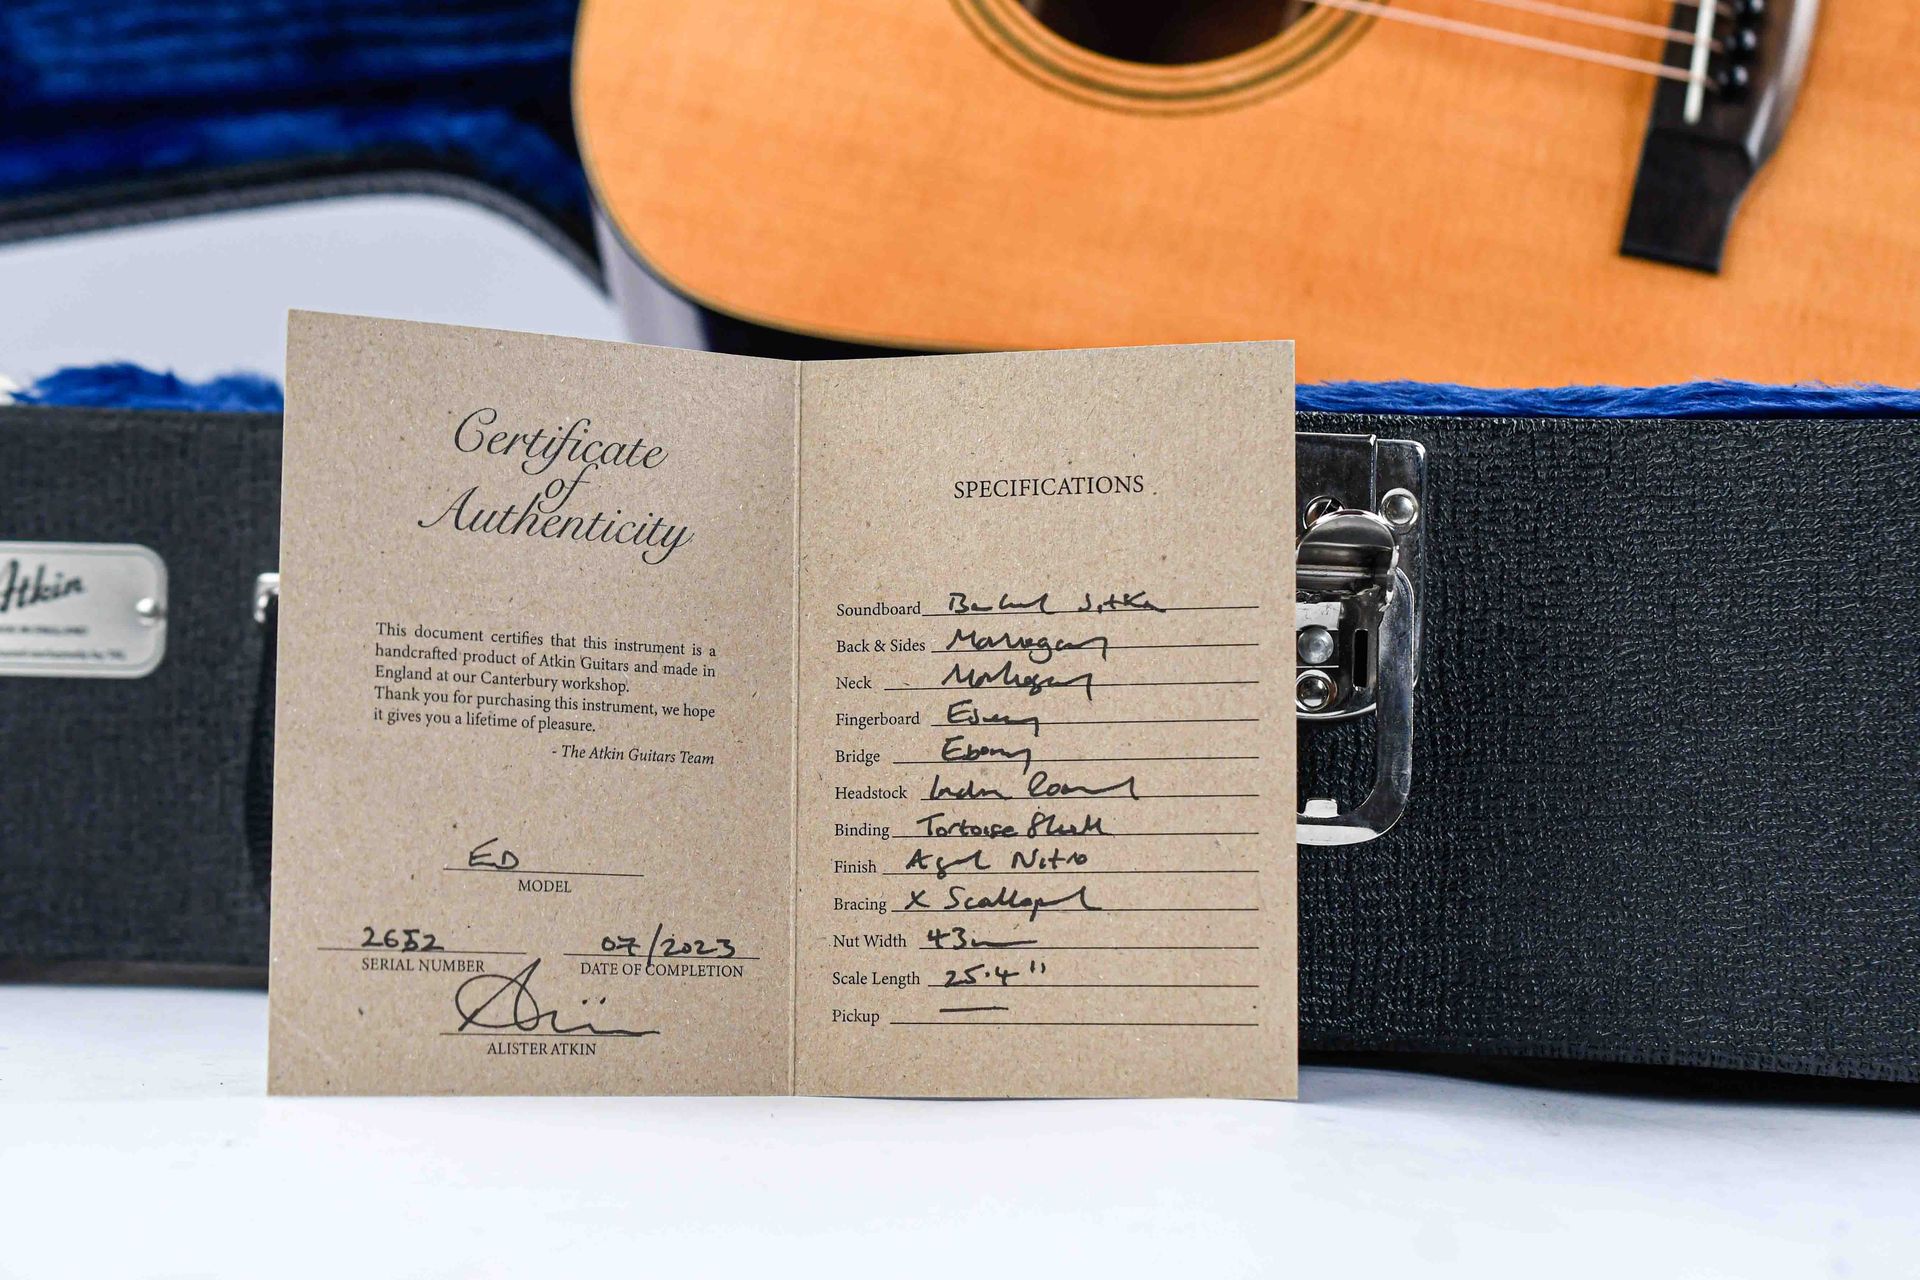 Atkin
Certificate
of
Authenticity
This document certifies that this instrument is a
handcrafted product of Atkin Guitars and made in
England at our Canterbury workshop.
Thank you for purchasing this instrument, we hope
it gives you a lifetime of pleasure.
- The Atkin Guitars Team
ED
MODEL
2652
SERIAL NUMBER
07/2023
DATE OF COMPLETION
ALISTER ATKIN
SPECIFICATIONS
Soundboard Baked Sitka
Back & Sides Mahogany
Neck Mahogany
Fingerboard Ebony
Bridge Ebony
Headstock Indian Rosewood
Binding Tortoise Shell
Finish Aged Nitro
Bracing X Scalloped
Nut Width 43mm
Scale Length 25.4"
Pickup —